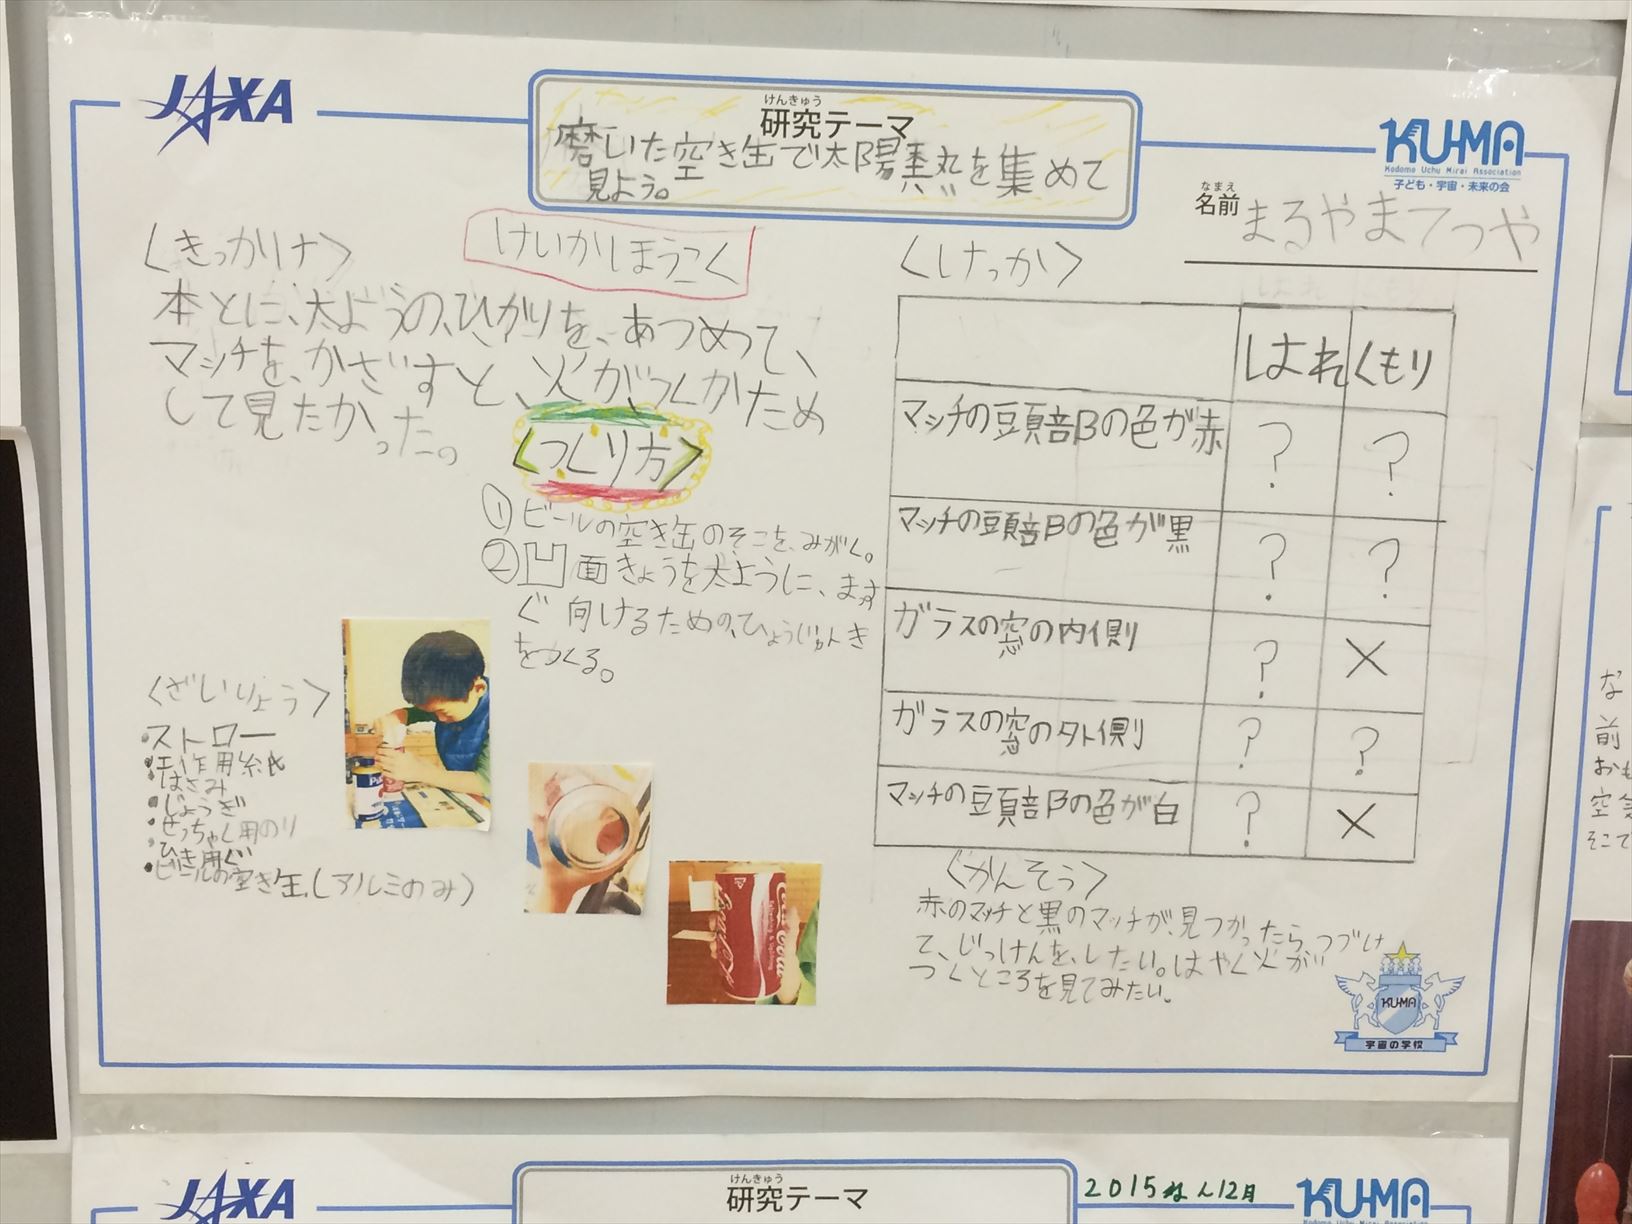 JAXA
けんきゅう
研究テーマ
磨いた空き缶で太陽熱を集めて
見よう。
KU-MA
Kodomo Uchu Mirai Association
子ども・宇宙・未来の会
なまえ
名前
まるやまてつや
<きっかけ>
けいかほうこく
本とに、太ようの、ひかりを、あつめて、
マッチを、かざすと、火が、つくかため
して見たかった。
<つくり方>
①ビールの空き缶のそこを、みがく。
②凹面きょうを太ように、ますっ
ぐ向けるための、ひょうじゅんき
をつくる。
<ざいりょう>
・ストロー
・工作用紙
・はさみ
・じょうぎ
・せっちゃく用のり
・ひき用ぐ
・ビールの空き缶(アルミのみ)
Coca-Cola
<けっか>
はれ くもり
マッチの頭部の色が赤 ? ?
マッチの頭部の色が黒 ? ?
ガラスの窓の内側 ? ×
ガラスの窓の外側 ? ?
マッチの頭部の色が白 ? ×
<かんそう>
赤のマッチと黒のマッチが、見つかったら、つづけ
て、じっけんを、したい。はやく火が
つくところを見てみたい。
KU-MA
宇宙の学校
な
前
おも
空気
そこで
JAXA
けんきゅう
研究テーマ
2015ねん12月
KU-MA
Kodomo Uchu Mirai Association